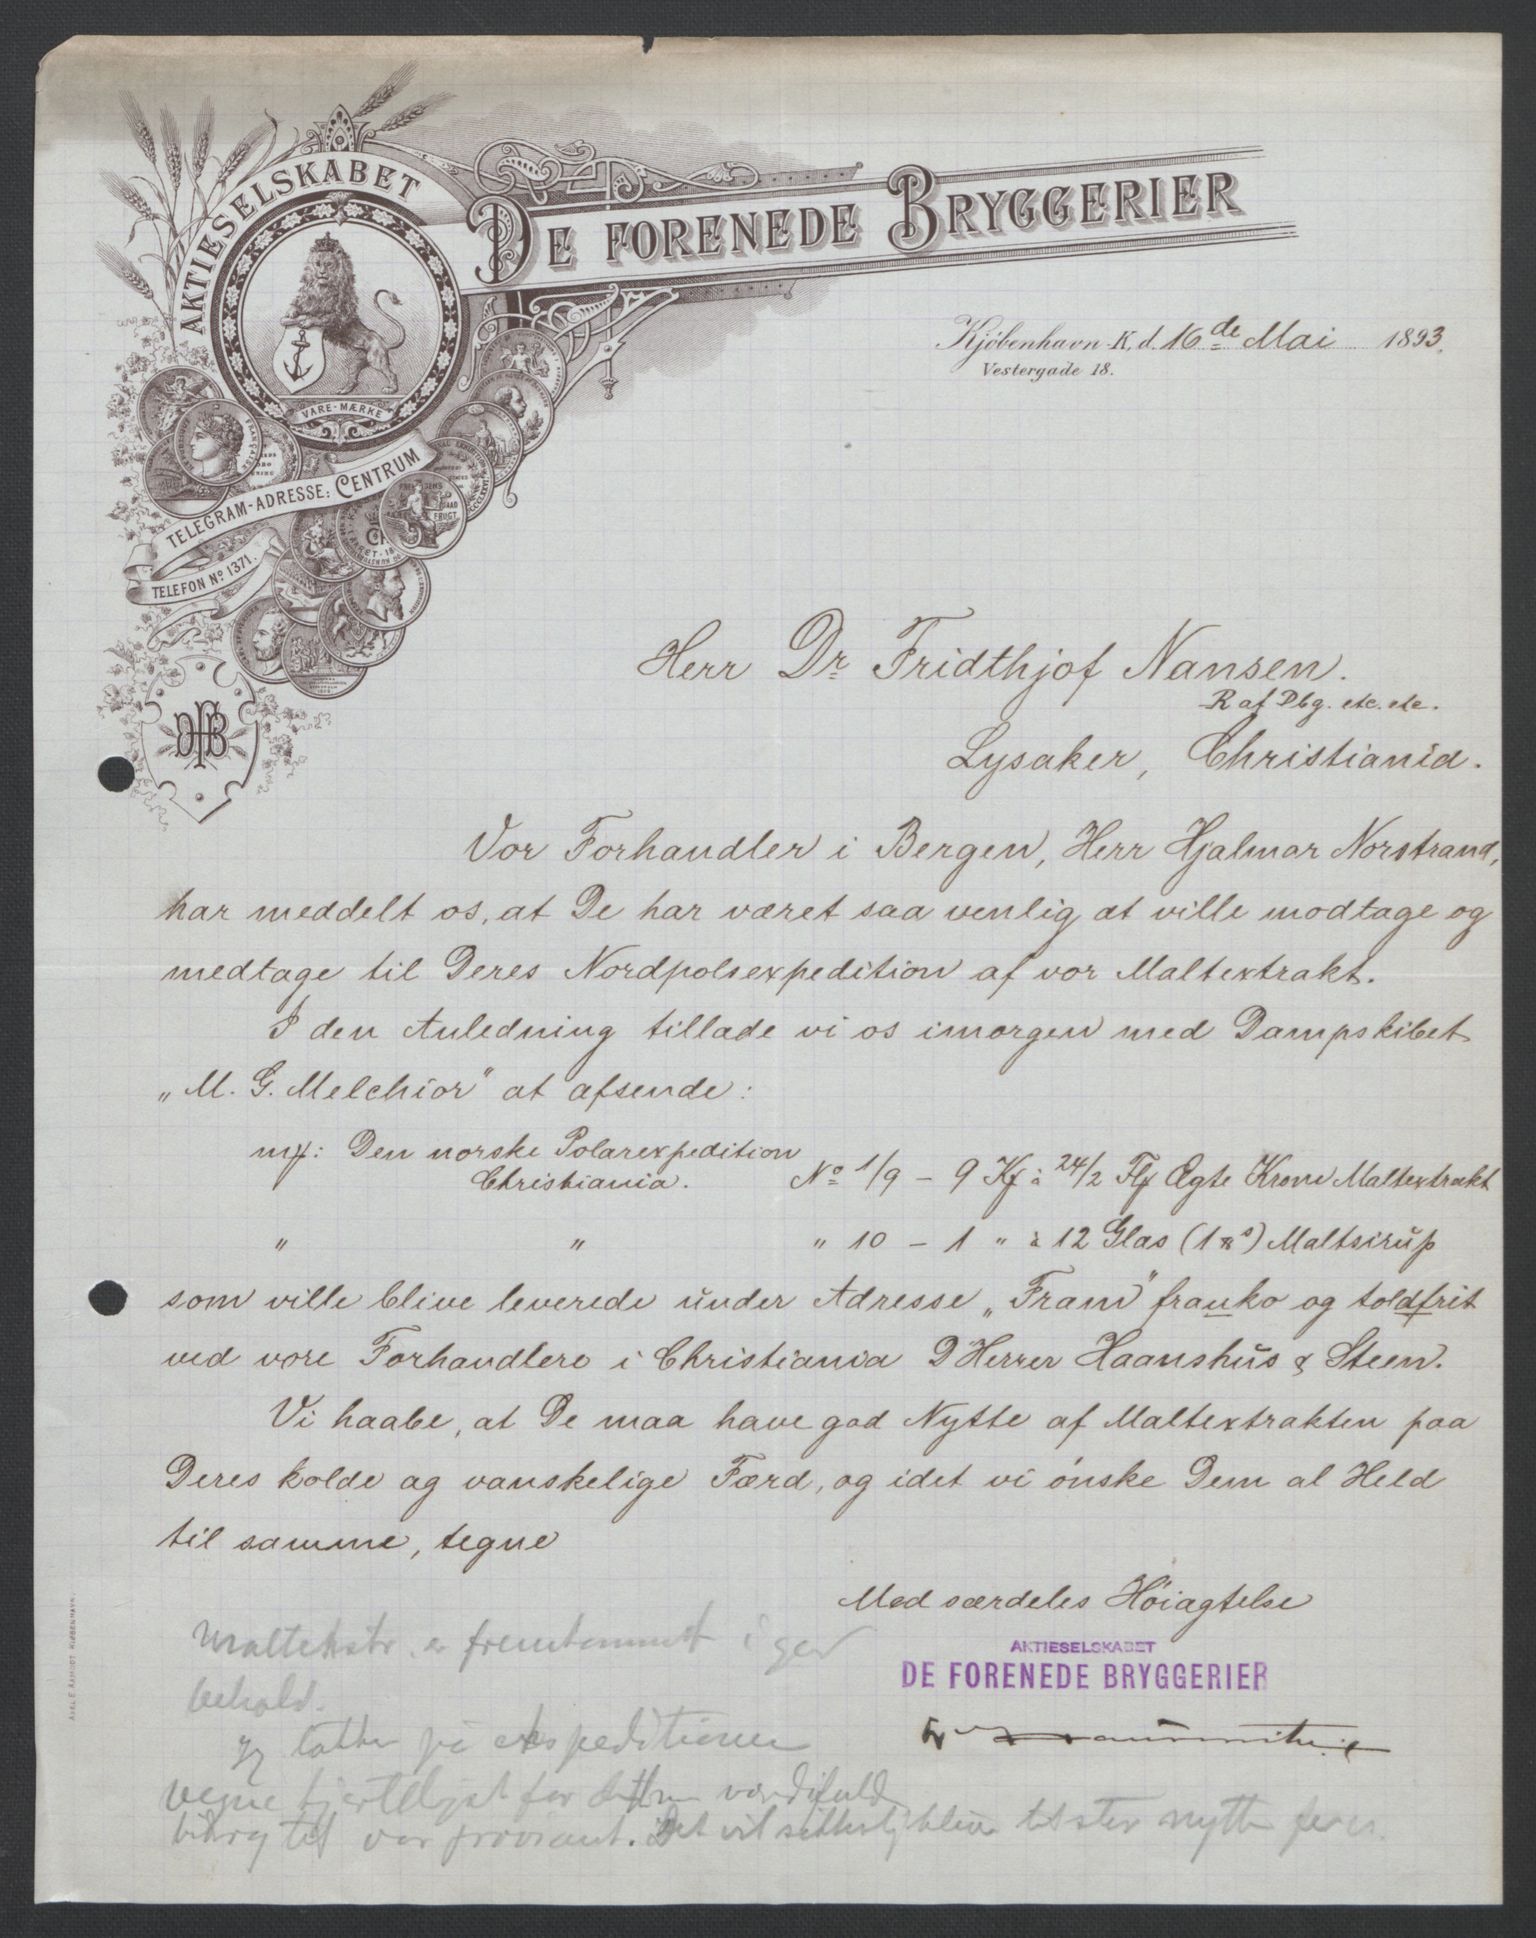 AKTIESELSKABET
DE FORENEDE BRYGGERIER
VARE-MÆRKE
TELEGRAM-ADRESSE: CENTRUM
TELEFON No 1371.
DFB
Kjöbenhavn-K, d. 16de Mai 1893.
Vestergade 18.
Herr Dr Fridthjof Nansen.
R af Dbg. etc. etc.
Lysaker, Christiania.
Vor Forhandler i Bergen, Herr Hjalmar Norstrand,
har meddelt os, at De har været saa venlig at ville modtage og
medtage til Deres Nordpolsexpedition af vor Maltextrakt.
I den Anledning tillade vi os imorgen med Dampskibet
"M. G. Melchior" at afsende:
Den norske Polarexpedition
Christiania. No 1/9 – 9 à 24/2 Ægte Krone Maltextrakt
" " " 10 – 1 " à 12 Glas Maltsirup
som ville blive leverede under Adresse "Fram" franko og toldfrit
ved vore Forhandlere i Christiania D'Herrer Haanshus & Steen.
Vi haabe, at De maa have god Nytte af Maltextrakten paa
Deres kolde og vanskelige Færd, og idet vi ønske Dem al Held
til samme, tegne
Med særdeles Höiagtelse
AKTIESELSKABET
DE FORENEDE BRYGGERIER
Maltekstr. er fremkommet i god
behold.
Jeg takker på ekspeditionens
vegne hjerteligst for værdifuld
bidrag til vor proviant. Det vil sikkerlig blive til stor nytte for os.
AXEL E. AAMODT KJØBENHAVN.